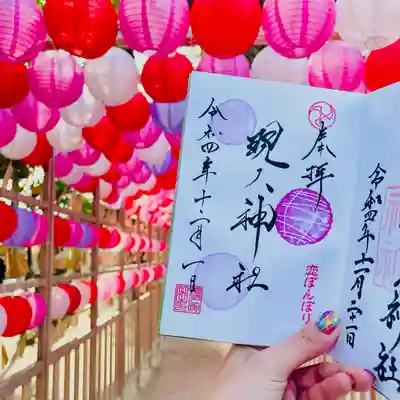 奉拝
現人神社
令和四年十一月一日
恋ぼんぼり
令和四年十一月一日
神社